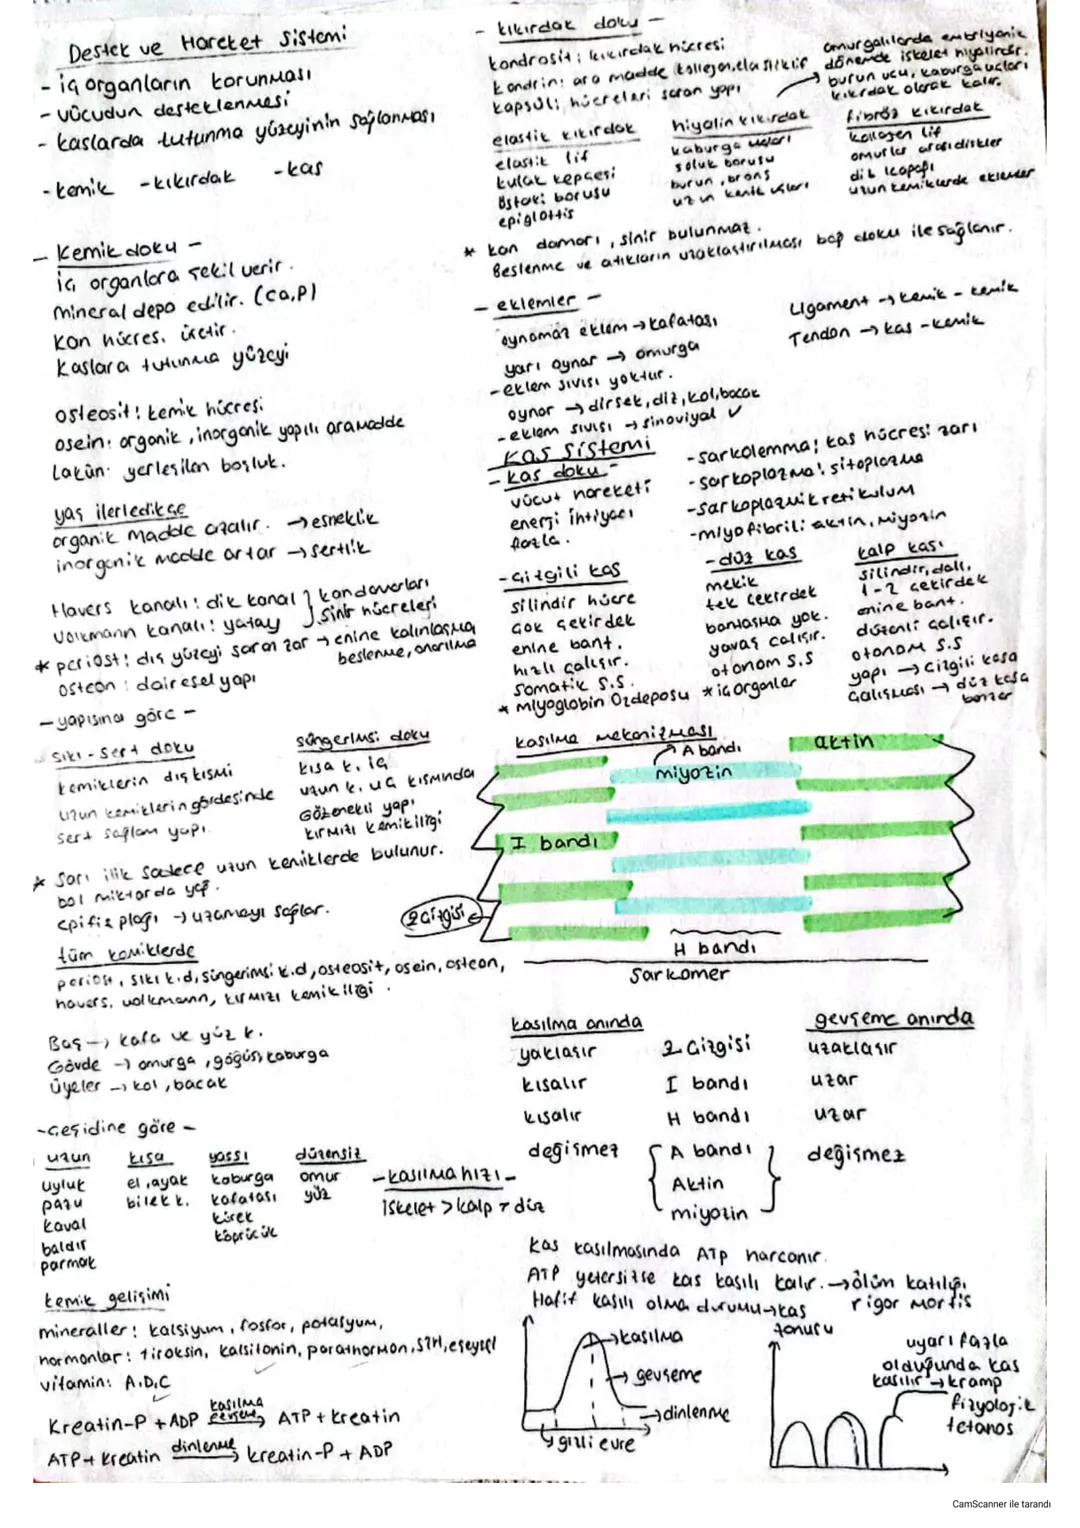 Destek ve Hareket Sistemi
- iç organların korunması
- vücudun desteklenmesi
- kaslarda tutunma yüzeyinin sağlanması
- kemik - kıkırdak - kas
- Kemik doku -
iç organlara şekil verir.
mineral depo edilir. (ca,P)
Kan hücres. üretir.
Kaslara tutunma yüzeyi
osteosit: kemik hücresi
osein: organik, inorganik yapılı aramadde
Lakün: yerleşilen boşluk.
yaş ilerledikçe
organik madde azalır. → esneklik
inorganik madde artar → sertlik
Havers kanalı: dik kanal } kan damarları
Volkmann kanalı: yatay } sinir hücreleri
* periost: dış yüzeyi saran zar → enine kalınlaşma
beslenme, onarılma
osteon: dairesel yapı
- yapısına göre -
sıkı - sert doku
kemiklerin dış kısmı
uzun kemiklerin gövdesinde
sert sağlam yapı.
süngerimsi doku
kısa k. iç
uzun k. uç kısmında
Gözenekli yapı
kırmızı kemik iliği
* Sarı ilik sadece uzun kemiklerde bulunur.
bol miktarda yağ.
epifiz plağı → uzamayı sağlar.
tüm kemiklerde
periost, sıkı k.d, süngerimsi k.d, osteosit, osein, osteon,
havers, volkmann, kırmızı kemik iliği.
Baş → kafa ve yüz k.
Gövde → omurga, göğüs, kaburga
Üyeler → kol, bacak
- Çeşidine göre -
uzun kısa yassı düzensiz
uyluk el, ayak kaburga omur
pazu bilek k. kafatası yüz
kaval kürek
baldır köprücük
parmak
kemik gelişimi
mineraller: kalsiyum, fosfor, potasyum,
hormonlar: tiroksin, kalsitonin, parathormon, STH, eşeysel
vitamin: A.D.C
Kreatin-P + ADP kasılma → ATP + kreatin
ATP + kreatin dinlenme → kreatin-P + ADP
- kıkırdak doku -
kondrosit: kıkırdak hücresi
kondrin: ara madde kollajen, elastiktir
kapsül: hücreleri saran yapı
omurgalılarda embriyonik
dönemde iskelet hiyalindir.
burun ucu, kaburga uçları
kıkırdak olarak kalır.
elastik kıkırdak
elastik lif
kulak kepçesi
östaki borusu
epiglottis
hiyalin kıkırdak
kaburga uçları
soluk borusu
burun, bronş
uzun kemik uçları
fibröz kıkırdak
kollagen lif
omurlar arası diskler
diz kapağı
uzun kemiklerde eklemler
* kan damarı, sinir bulunmaz.
Beslenme ve atıkların uzaklaştırılması bağ doku ile sağlanır.
- eklemler -
oynamaz eklem → kafatası
yarı oynar → omurga
- eklem sıvısı yoktur.
oynar → dirsek, diz, kol, bacak
- eklem sıvısı → sinoviyal ✓
Ligament → kemik - kemik
Tendon → kas - kemik
Kas Sistemi
- kas doku -
vücut hareketi
enerji ihtiyacı
fazla.
- sarkolemma; kas hücresi zarı
- sarkoplazma: sitoplazma
- sarkoplazmik retikulum
- miyofibril: aktin, miyozin
- Çizgili kas
silindir hücre
çok çekirdek
enine bant.
hızlı çalışır.
Somatik S.S.
* Miyoglobin O2 deposu
- düz kas
mekik
tek çekirdek
bantlaşma yok.
yavaş çalışır.
otonom S.S
* iç organlar
kalp kası
silindir, dall.
1-2 çekirdek
enine bant.
düzenli çalışır.
otonom S.S
yapı → çizgili kasa
Çalışması → düz kasa
benzer
kasılma mekanizması
A bandı
aktin
miyozin
I bandı
Z çizgisi
H bandı
Sarkomer
kasılma anında gevşeme anında
yaklaşır Z çizgisi uzaklaşır
kısalır I bandı uzar
kısalır H bandı uzar
değişmez A bandı değişmez
Aktin
miyozin
- kasılma hızı -
iskelet > kalp > düz
Kas kasılmasında ATP harcanır.
ATP yetersizse kas kasılı kalır. → ölüm katılığı
rigor mortis
Hafif kasılı olma durumu → kas
tonusu
kasılma
gevşeme
dinlenme
gizli evre
uyarı fazla
olduğunda kas
kasılır → kramp
fizyolojik
tetanos
CamScanner ile tarandı